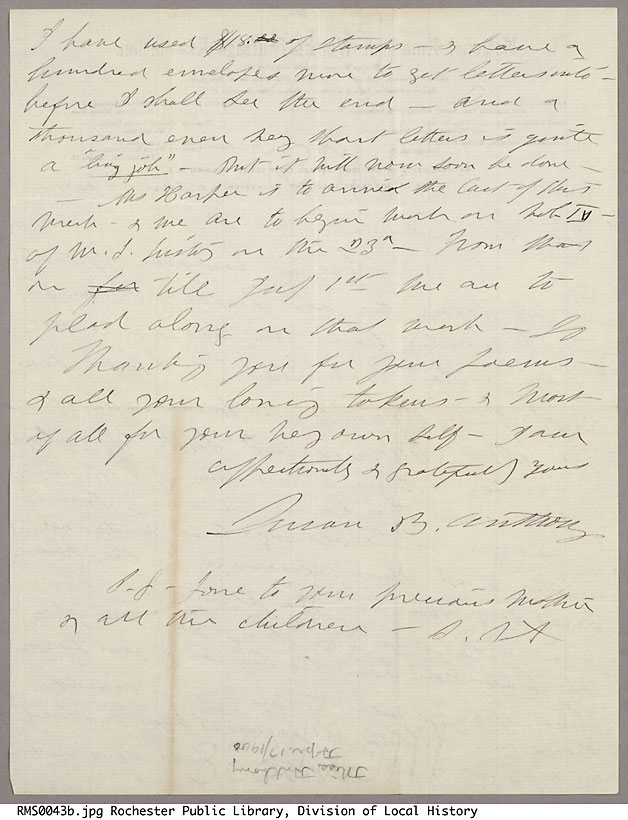 I have used $18.00 of stamps — & have a
hundred envelopes more to get letters into —
before I shall see the end — and a
thousand even very short letters is quite
a "big job" — But it will now soon be done —
Mrs Harper is to arrive the last of this
week — & we are to begin work on Vol. IV —
of W. S. History on the 23d — From then
on for till July 1st we are to
plod along on that work — So
Thanking you for your poems —
& all your loving tokens — & most
of all for your very own self — I am
affectionately & gratefully yours
Susan B. Anthony
P. S — love to your precious mother
& all the children — S. B. A
Miss Anthony
Apr. 17/1900
RMS0043b.jpg Rochester Public Library, Division of Local History